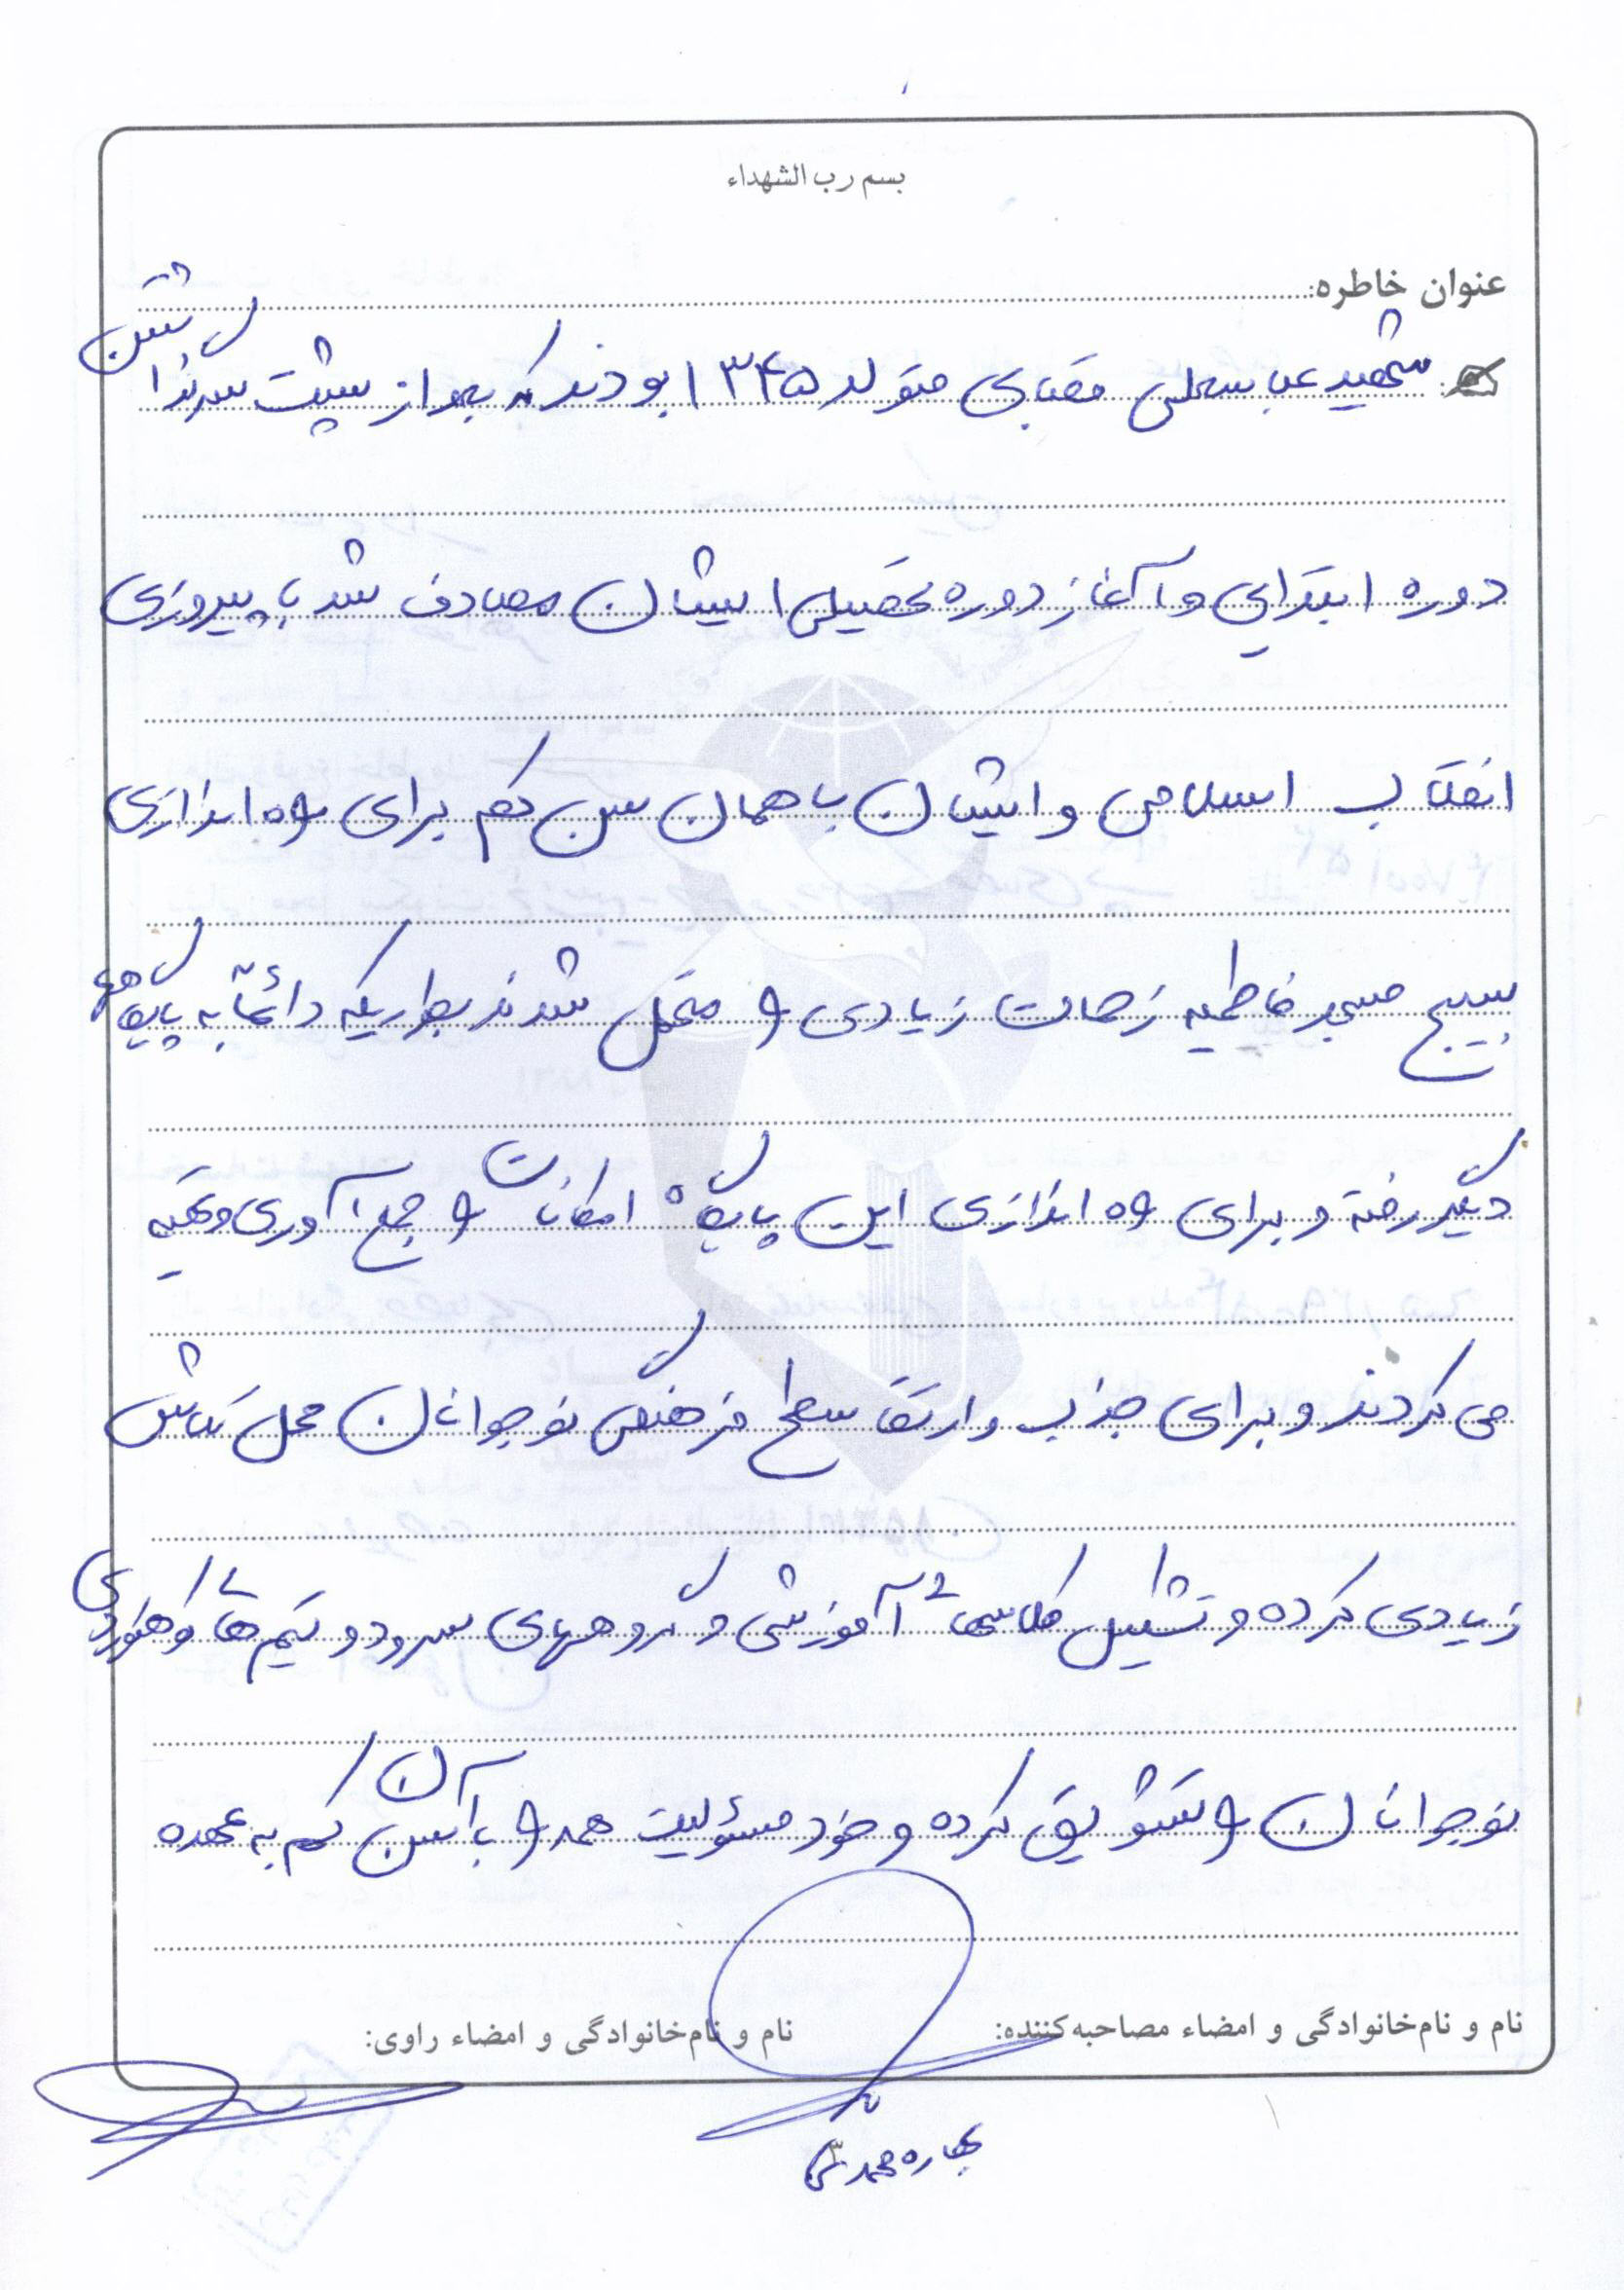 بسم رب الشهداء
عنوان خاطره:
شهید عباسعلی قصابی متولد ۱۳۴۵ بودند که بعد از پشت سر گذاشتن
دوره ابتدایی و آغاز دوره تحصیلی ایشان مصادف شد با پیروزی
انقلاب اسلامی و ایشان با همان سن کم برای راه اندازی
بسیج مسجد فاطمیه زحمات زیادی را متحمل شدند بطوریکه دائماً به پایگاه های
دیگر رفته و برای راه اندازی این پایگاه امکانات را جمع آوری و تهیه
می کردند و برای جذب و ارتقا سطح فرهنگی نوجوانان محل تلاش
زیادی کرده و تشکیل کلاسهای آموزشی و گروههای سرود و تیم های کوهنوردی
نوجوانان را تشویق کرده و خود مسئولیت همه را با آن سن کم به عهده
نام و نام‌خانوادگی و امضاء مصاحبه‌کننده:
نام و نام‌خانوادگی و امضاء راوی:
بهاره محمد